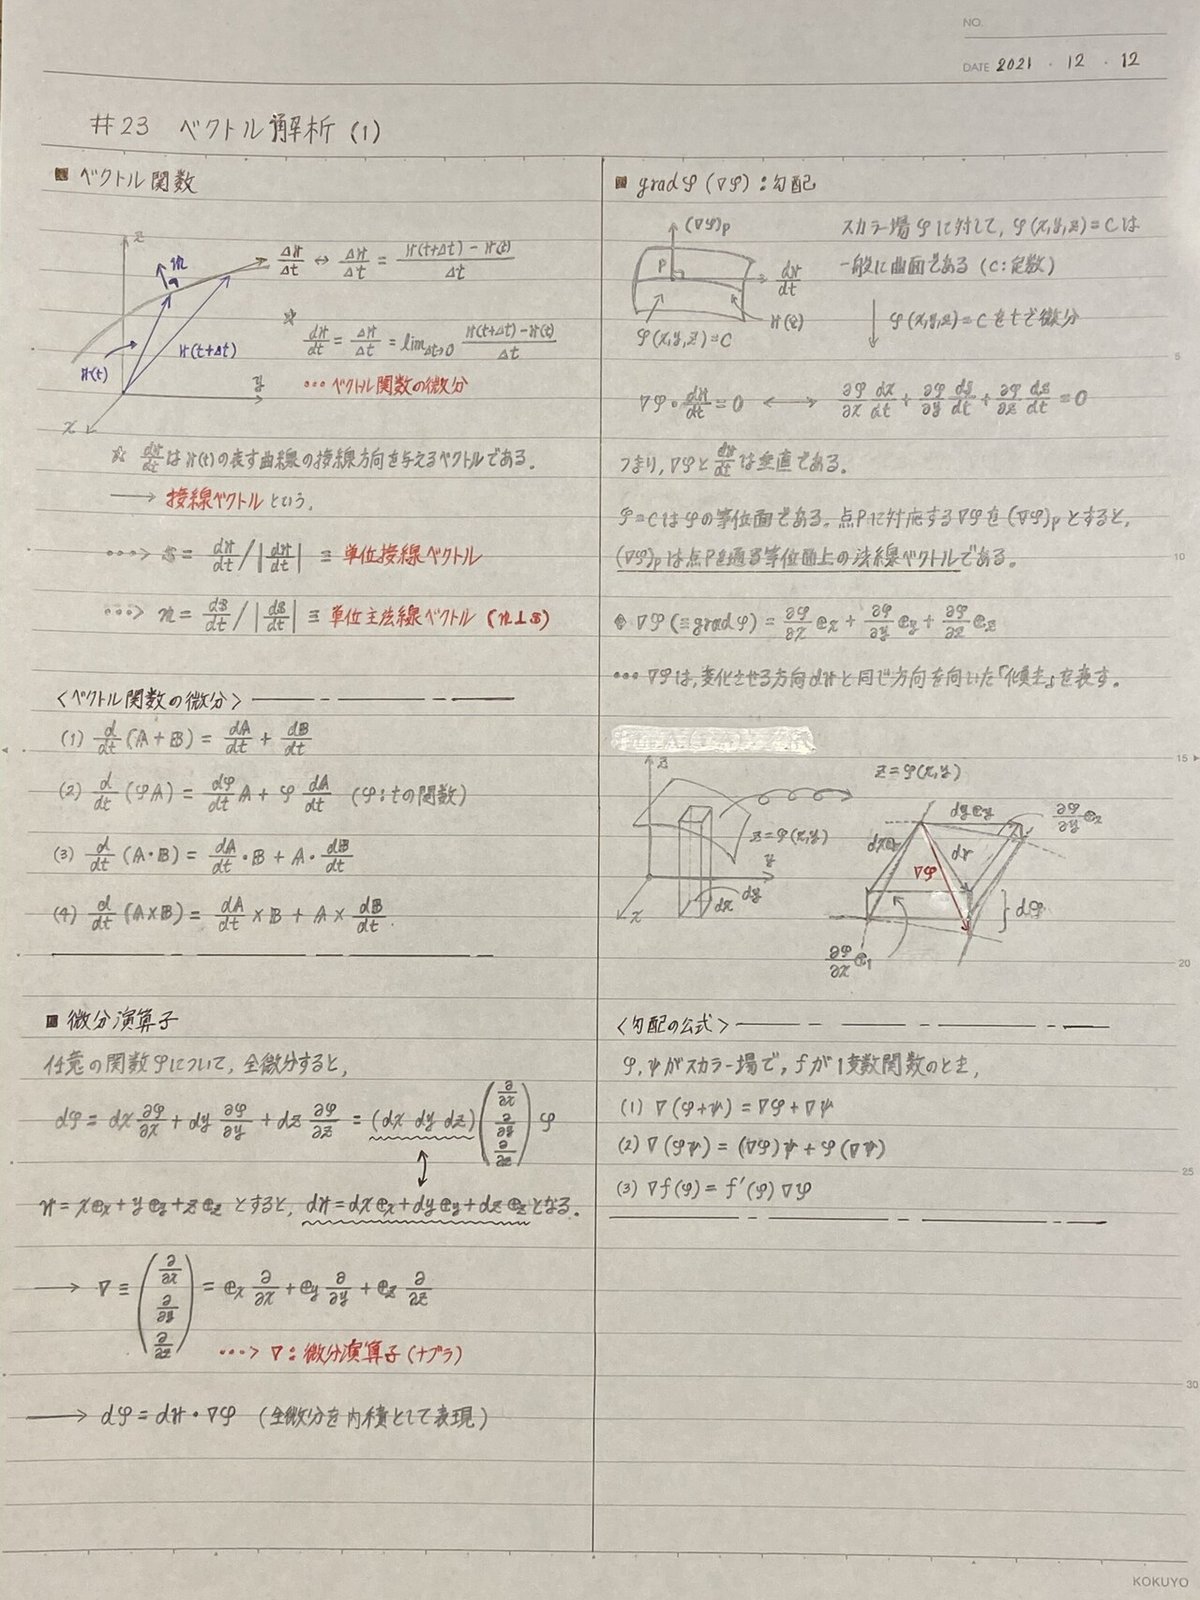 NO.
DATE 2021 ・ 12 ・ 12
#23 ベクトル解析 (1)
■ ベクトル関数
z
n
Δr/Δt ↔ Δr/Δt = (r(t+Δt) - r(t))/Δt
☆ dr/dt = Δr/Δt = lim Δt→0 (r(t+Δt) - r(t))/Δt
r(t+Δt)
r(t)
y
… ベクトル関数の微分
x
☆ dr/dt は r(t) の表す曲線の接線方向を与えるベクトルである。
→ 接線ベクトル という。
…> s = dr/dt / |dr/dt| ≡ 単位接線ベクトル
…> n = ds/dt / |ds/dt| ≡ 単位主法線ベクトル (n⊥s)
<ベクトル関数の微分>
(1) d/dt (A + B) = dA/dt + dB/dt
(2) d/dt (φA) = dφ/dt A + φ dA/dt (φ:tの関数)
(3) d/dt (A・B) = dA/dt ・B + A・ dB/dt
(4) d/dt (A×B) = dA/dt × B + A × dB/dt .
■ 微分演算子
任意の関数φについて, 全微分すると,
dφ = dx ∂φ/∂x + dy ∂φ/∂y + dz ∂φ/∂z = (dx dy dz) (∂/∂x ∂/∂y ∂/∂z) φ
r = x ex + y ey + z ez とすると, dr = dx ex + dy ey + dz ez となる.
→ ∇ ≡ (∂/∂x ∂/∂y ∂/∂z) = ex ∂/∂x + ey ∂/∂y + ez ∂/∂z
…> ∇ : 微分演算子 (ナブラ)
→ dφ = dr・∇φ (全微分を内積として表現)
■ gradφ (∇φ) : 勾配
(∇φ)p
P
dr/dt
r(t)
φ(x,y,z)=C
スカラー場 φ に対して, φ(x,y,z) = C は
一般に曲面である (C:定数)
↓ φ(x,y,z) = C を t で微分
∇φ・dr/dt = 0 ←→ ∂φ/∂x dx/dt + ∂φ/∂y dy/dt + ∂φ/∂z dz/dt = 0
つまり, ∇φ と dr/dt は垂直である.
φ=C は φ の等位面である. 点Pに対応する ∇φ を (∇φ)p とすると,
(∇φ)p は点Pを通る等位面上の法線ベクトルである.
◆ ∇φ (≡gradφ) = ∂φ/∂x ex + ∂φ/∂y ey + ∂φ/∂z ez
… ∇φは, 変化させる方向 dr と同じ方向を向いた「傾き」を表す.
z
z=φ(x,y)
y
x
dx
dy
z = φ(x,y)
dy ey
∂φ/∂y e2
dx ex
dr
∇φ
dφ
∂φ/∂x e1
<勾配の公式>
φ, ψ がスカラー場で, f が1変数関数のとき,
(1) ∇(φ+ψ) = ∇φ + ∇ψ
(2) ∇(φψ) = (∇φ)ψ + φ(∇ψ)
(3) ∇f(φ) = f'(φ)∇φ
5
10
15
20
25
30
KOKUYO